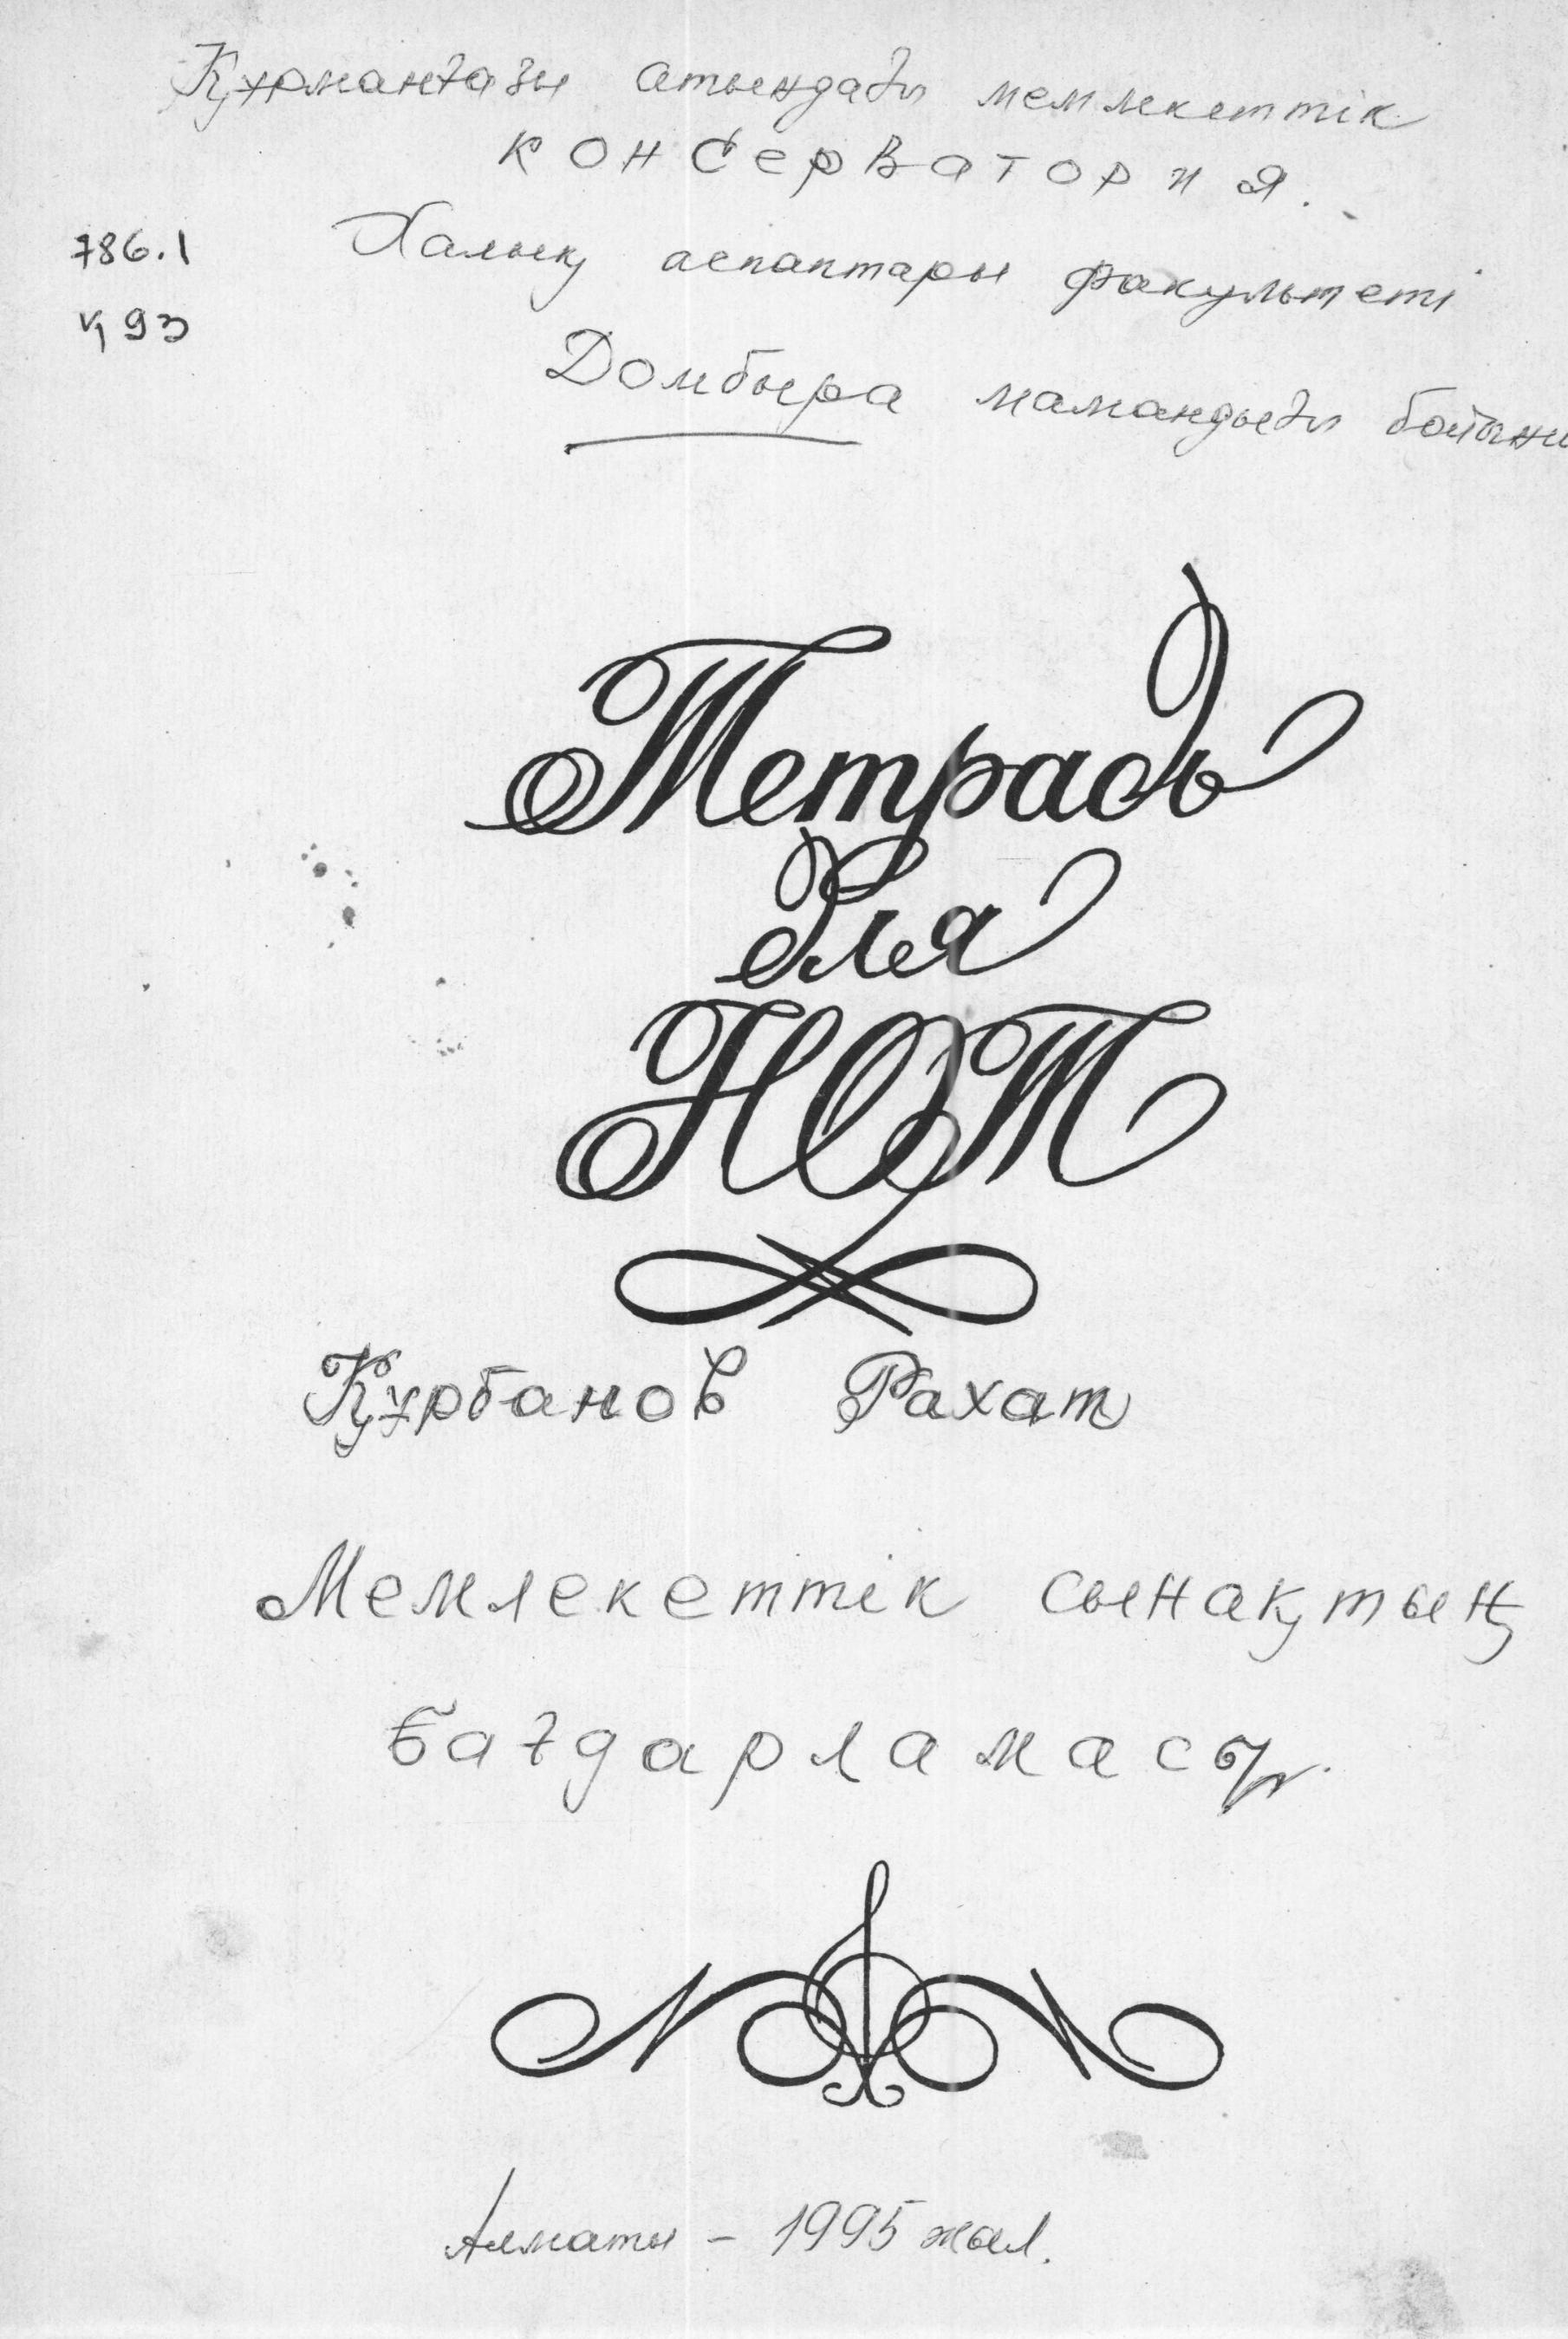 Құрманғазы атындағы мемлекеттік
консерватория.
786.1
Халық аспаптары факультеті
Қ 93
Домбыра мамандығы бойынш
Тетрадь
для
НОТ
Құрбанов Рахат
Мемлекеттік сынақтың
бағдарламасы.
Алматы – 1995 жыл.